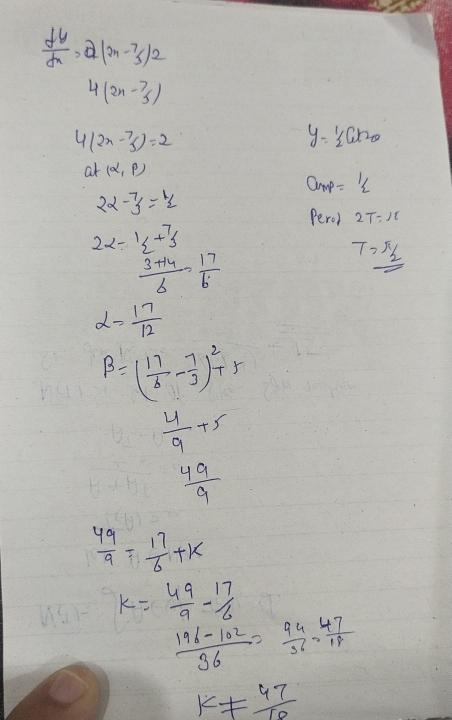 dy/dx = 2(2x - 7/3)2
4(2x - 7/3)
4(2x - 7/3) = 2
at (α, β)
2α - 7/3 = 1/2
2α = 1/2 + 7/3
3+14/6 = 17/6
α = 17/12
β = (17/6 - 7/3)² + 5
4/9 + 5
49/9
49/9 = 17/6 + K
K = 49/9 - 17/6
196 - 102/36 = 94/36 = 47/18
K = 47/18
Amp = 1/2
Period 2T = π
T = π/2